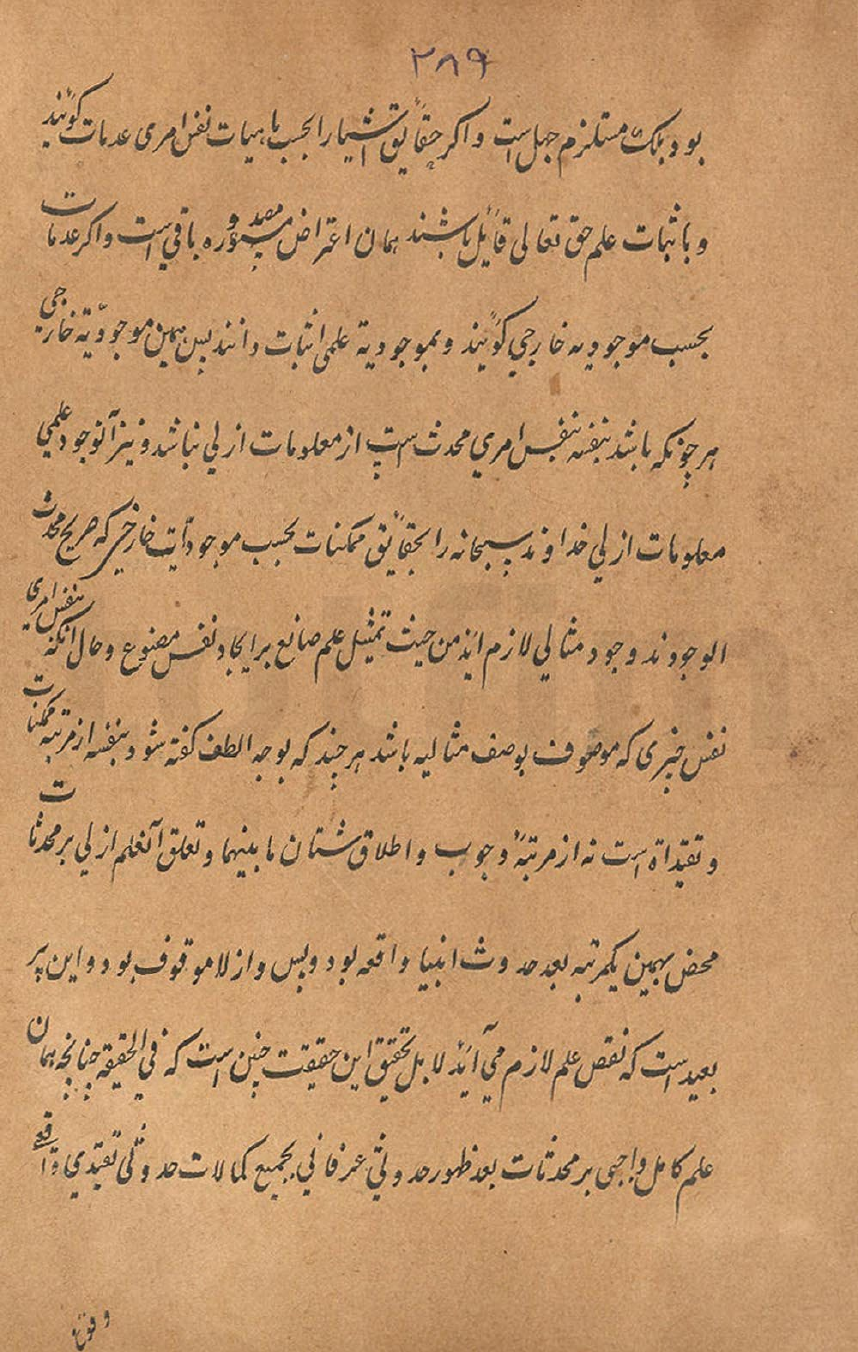 ۲۸۹
بود بلکه مستلزم جهل است و اگر حقایق اشیا را بحسب ماهیات نفس امری عدمات گویند
و باثبات علم حق تعالی قایل باشند همان اعتراض مصدوره باقی است و اگر عدمات
بحسب موجودیه خارجی گویند و بموجودیة علمی اثبات دانند پس همین موجودیة خارجی
هر چونکه باشد بنفسه بنفس امری محدث است از معلومات ازلی نباشد و نیز آنوجود علمی
معلومات ازلی خداوند سبحانه را بحقایق ممکنات بحسب موجودیات خارجی که صریح محدث
الوجودند وجود مثالی لازم آید من حیث تمثیل علم صانع بر ایجاد نفس مصنوع و حال آنکه بنفس امری
نفس چیزی که موصوف بوصف مثالیه باشد هر چند که بوجه الطف گفته شود بنفسه از مرتبه ممکنات
و تقیداة است نه از مرتبهٔ وجوب و اطلاق شتان ما بینهما و تعلق آنعلم ازلی بر محدثات
محض بهمین یکمرتبه بعد حدوث اشیا واقعه بود و بس و ازلا موقوف بود و این پر
بعید است که نقص علم لازم می آید لا بل تحقیق این حقیقت چنین است که فی الحقیقة چنانچه همان
علم کامل واجبی بر محدثات بعد ظهور حدوثی عرفانی بجمیع کمالات حدوثی تقیدی واقعی
وقوع